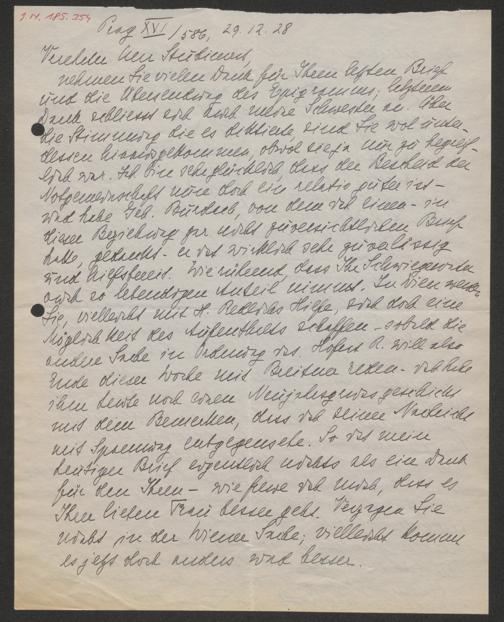 J.N. 185.354
Prag XVI/586, 29.12.28
Verehrter Herr Stubimer,
nehmen Sie vielen Dank für Ihren letzten Brief
und die Übersendung des Epigramms; letzterem
Dank schliesst sich auch meine Schwester an. Über
die Stimmung die es diktierte sind Sie wol unter-
dessen hinweggekommen, obwol sie ja nur zu begreif-
lich war. Ich bin sehr glücklich, dass der Bescheid der
Notgemeinschaft nun doch ein relativ guter ist -
und habe Geh. von dem ich einen - in
dieser Beziehung gar nicht zuversichtlichen Brief
hatte, gedankt - er ist wirklich sehr zuverlässig
und hilfsbereit. Wie rührend, dass Ihr Schwiegervater
auch so lebendigen Anteil nimmt. In Wien werden
Sie, vielleicht mit H. Redlichs Hilfe, sich doch eine
Möglichkeit des Aufenthalts schaffen - sobald die
andere Sache in Ordnung ist. Hofrat R. will also
Ende dieser Woche mit Breitner reden - ich habe
ihm heute noch einen Neujahrsgruss geschickt
mit dem Bemerken, dass ich seiner Nachricht
mit Spannung entgegensehe. So ist mein
heutiger Brief eigentlich nichts als ein Dank
für den Ihren - wie freue ich mich, dass es
Ihrer lieben Frau besser geht. Verzagen Sie
nicht in der Wiener Sache; vielleicht kommt
es jetzt doch anders und besser.